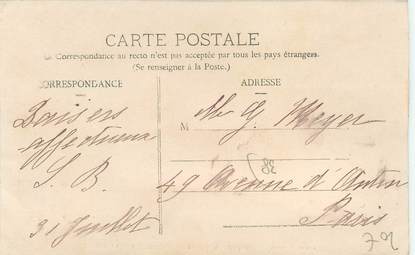 CARTE POSTALE
La Correspondance au recto n'est pas acceptée par tous les pays étrangers.
(Se renseigner à la Poste.)
CORRESPONDANCE
ADRESSE
Baisers
affectueux
S. B.
31 Juillet
M
Mr G. Meyer
49 Avenue d'Antin
Paris